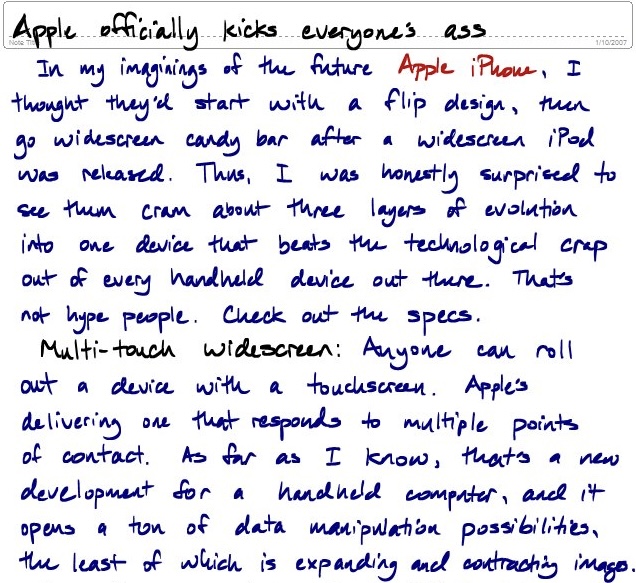 Apple officially kicks everyone's ass
Note Title
1/10/2007
In my imaginings of the future Apple iPhone, I
thought they'd start with a flip design, then
go widescreen candy bar after a widescreen iPod
was released. Thus, I was honestly surprised to
see them cram about three layers of evolution
into one device that beats the technological crap
out of every handheld device out there. That's
not hype people. Check out the specs.
Multi-touch widescreen: Anyone can roll
out a device with a touchscreen. Apple's
delivering one that responds to multiple points
of contact. As far as I know, that's a new
development for a handheld computer, and it
opens a ton of data manipulation possibilities,
the least of which is expanding and contracting images.